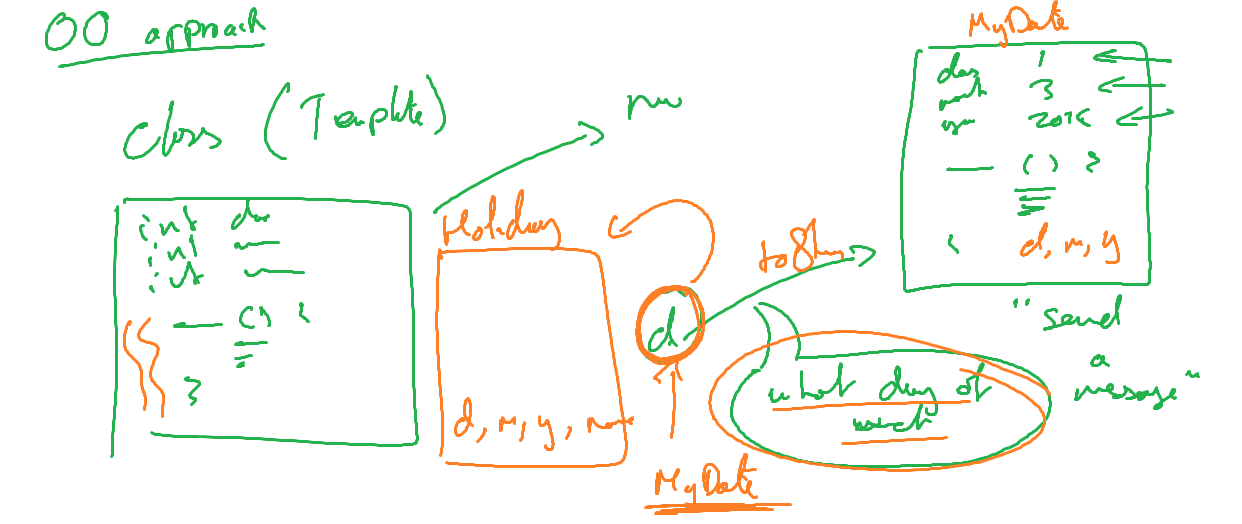 OO approach
class (Template)
new
int day
int
int
( ) {
}
Holiday
d, m, y, name
d
MyDate
toString
what day of
week
MyDate
day 1
month 3
year
( ) }
d, m, y
"send
a
message"